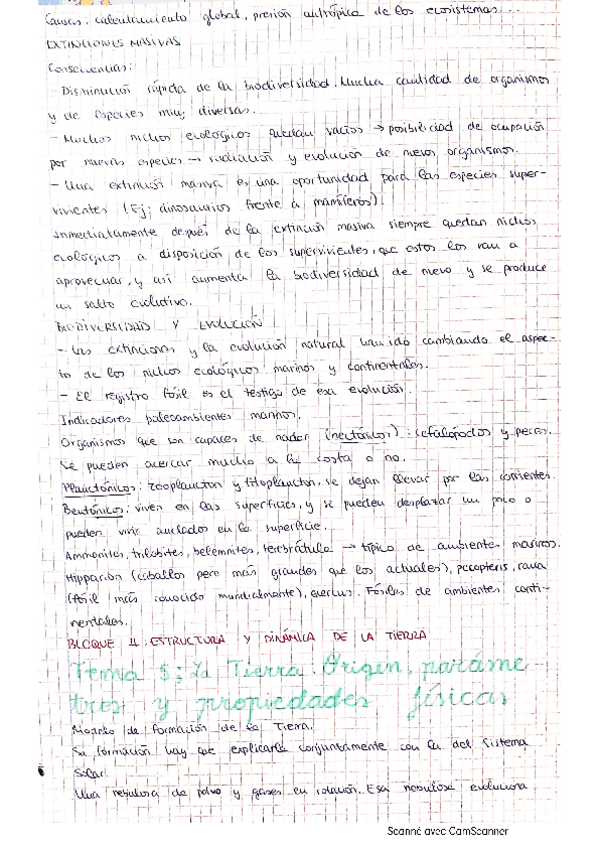 Causas: calentamiento global, presión antrópica de los ecosistemas...
EXTINCIONES MASIVAS
Consecuencias:
- Disminución rápida de la biodiversidad. Mucha cantidad de organismos
y de especies muy diversas.
- Muchos nichos ecológicos quedan vacíos → posibilidad de ocupación
por nuevas especies → radiación y evolución de nuevos organismos.
- Una extinción masiva es una oportunidad para las especies super-
vivientes (Ej: dinosaurios frente a mamíferos).
Inmediatamente después de la extinción masiva siempre quedan nichos
ecológicos a disposición de los supervivientes, que estos los van a
aprovechar, y así aumenta la biodiversidad de nuevo y se produce
un salto evolutivo.
BIODIVERSIDAD Y EVOLUCIÓN
- Las extinciones y la evolución natural han ido cambiando el aspec-
to de los nichos ecológicos marinos y continentales.
- El registro fósil es el testigo de esa evolución.
Indicadores paleoambientes marinos.
Organismos que son capaces de nadar (nectónicos): cefalópodos y peces.
Se pueden acercar mucho a la costa o no.
Planctónicos: zooplancton y fitoplancton, se dejan llevar por las corrientes.
Bentónicos: viven en las superficies, y se pueden desplazar un poco o
pueden vivir anclados en la superficie.
Ammonites, trilobites, belemnites, terebrátula → típico de ambientes marinos.
Hipparion (caballos pero más grandes que los actuales), pecopteris, rana
(fósil más conocido mundialmente), quercus. Fósiles de ambientes conti-
nentales.
BLOQUE II: ESTRUCTURA Y DINÁMICA DE LA TIERRA
Tema 5: La Tierra: Origen, paráme-
tres y propiedades físicas
Modelo de formación de la Tierra.
Su formación hay que explicarla conjuntamente con la del Sistema
Solar.
Una nebulosa de polvo y gases en rotación. Esa nebulosa evoluciona
Scanné avec CamScanner